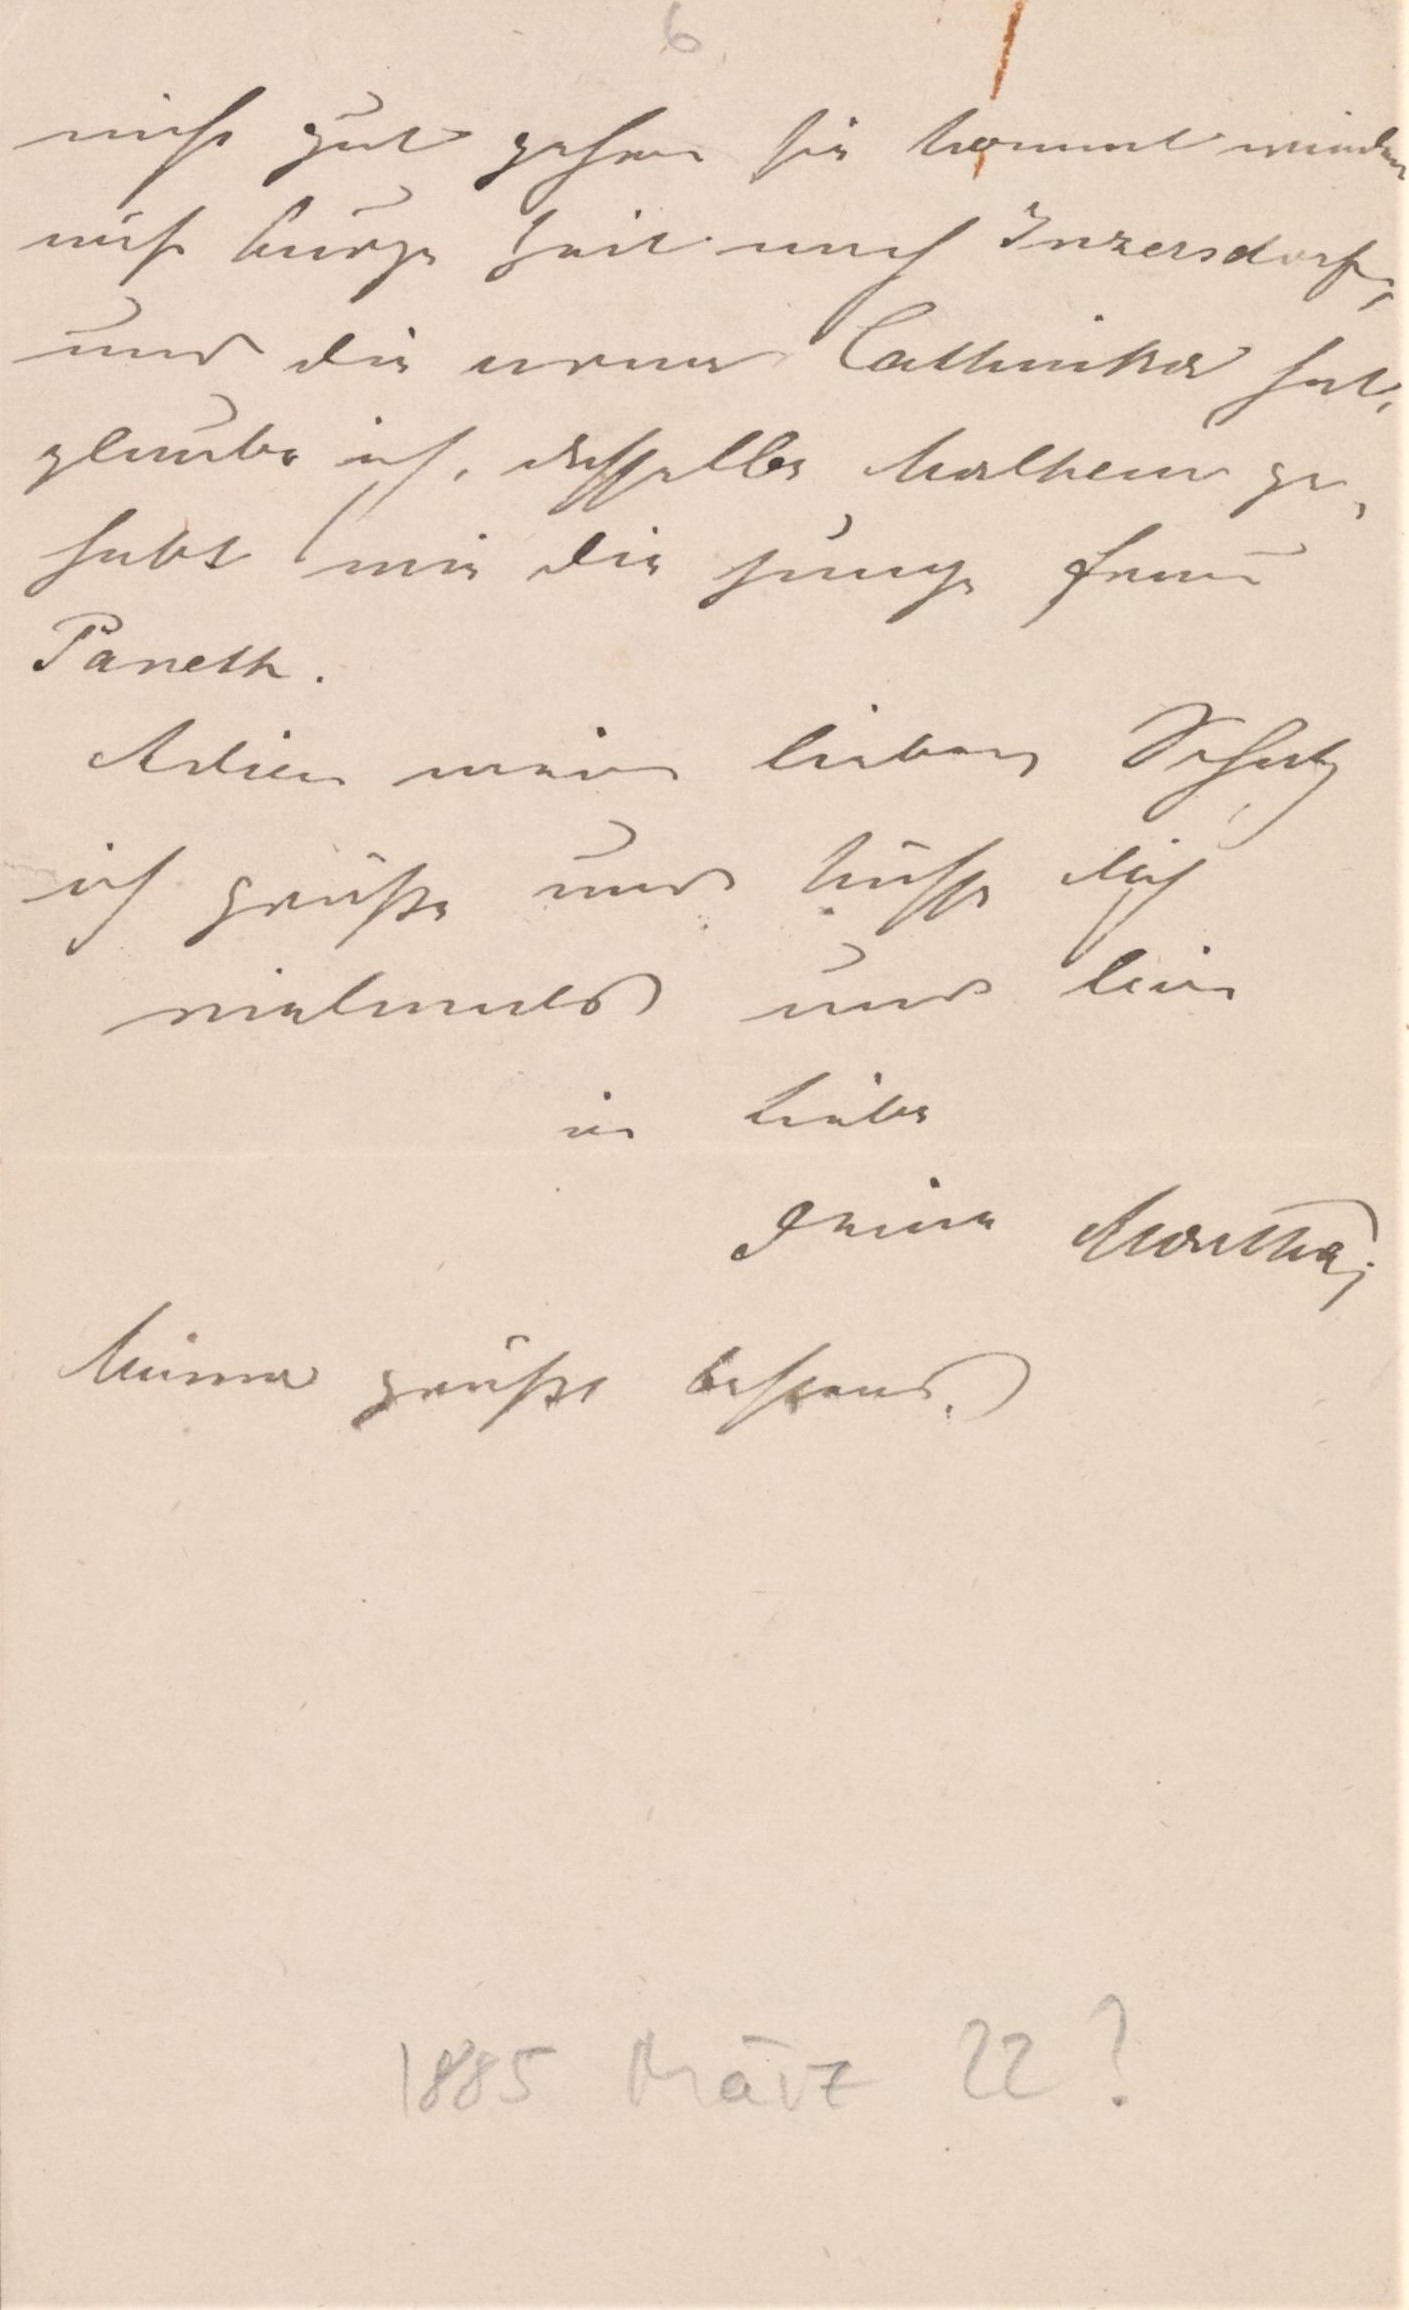 6
nicht gut gehen sie kommt wieder
auf kurze Zeit nach Inzersdorf,
und die arme Cathinka hat,
glaube ich, dasselbe Malheur ge-
habt wie die junge Frau
Paneth.
Adieu mein lieber Schatz
ich grüße und küsse Dich
vielmals und bin
in Liebe
Deine Martha.
Minna grüßt bestens.
1885 März 22?